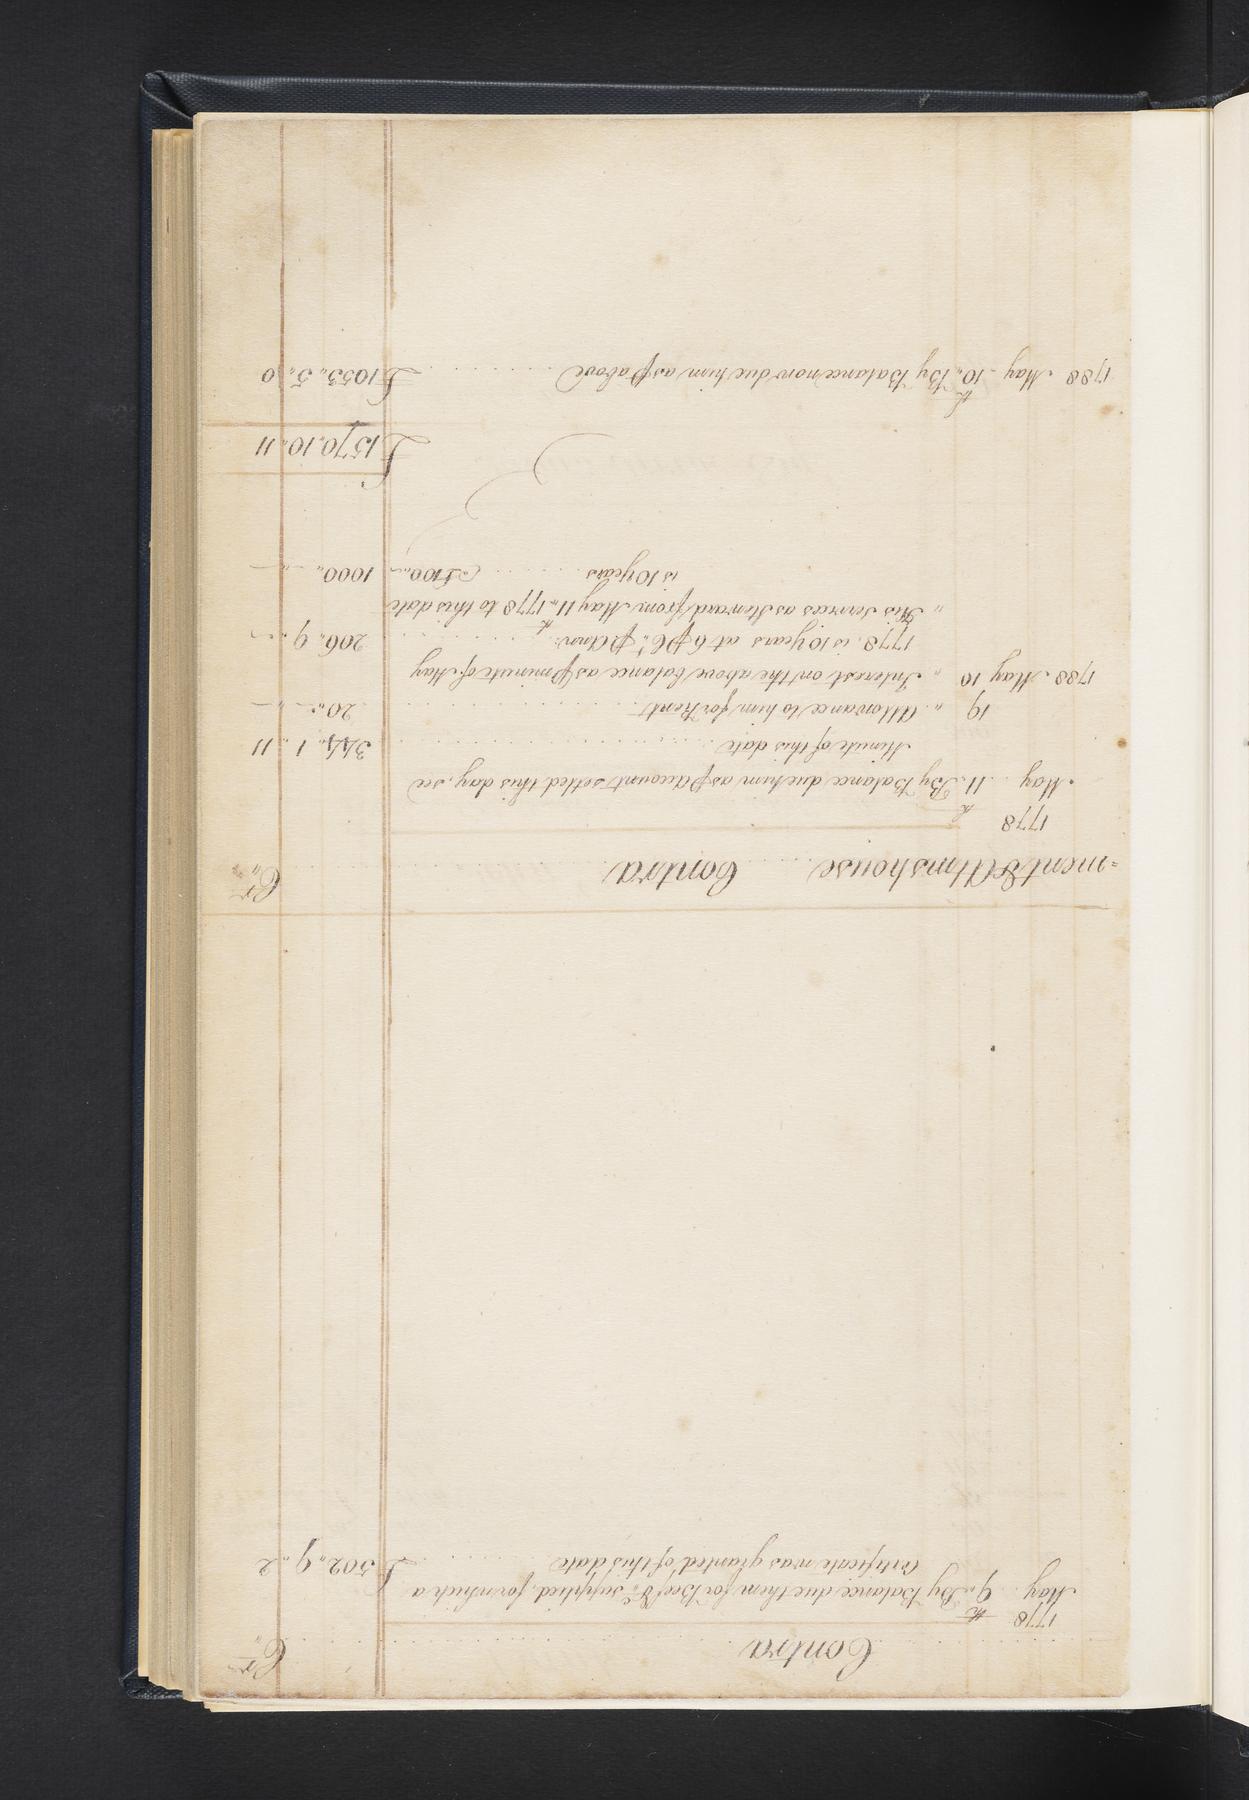 Contra Cr.
1778
May 9th By Balance due them for Beef &c. supplied, for which a
Certificate was granted of this date £502,, 9,, 2
=ment & Almshouse Contra Cr.
1778
May 11th By Balance due him as ⅌ account settled this day, see
Minute of this date 344,, 1,, 11
19 ,, Allowance to him for Rent 20,, -,, -
1788 May 10 ,, Interest on the above balance as ⅌ minute of May
1778, is 10 years at 6 ⅌ Ct. ⅌ Ann: 206,, 9,, -
,, His services as Steward from May 11th 1778 to this date
is 10 years @ £100,,- 1000,, -,, -
£1570,, 10,, 11
1788 May 10th By Balance now due him as ⅌ above £1053,, 5,, 0